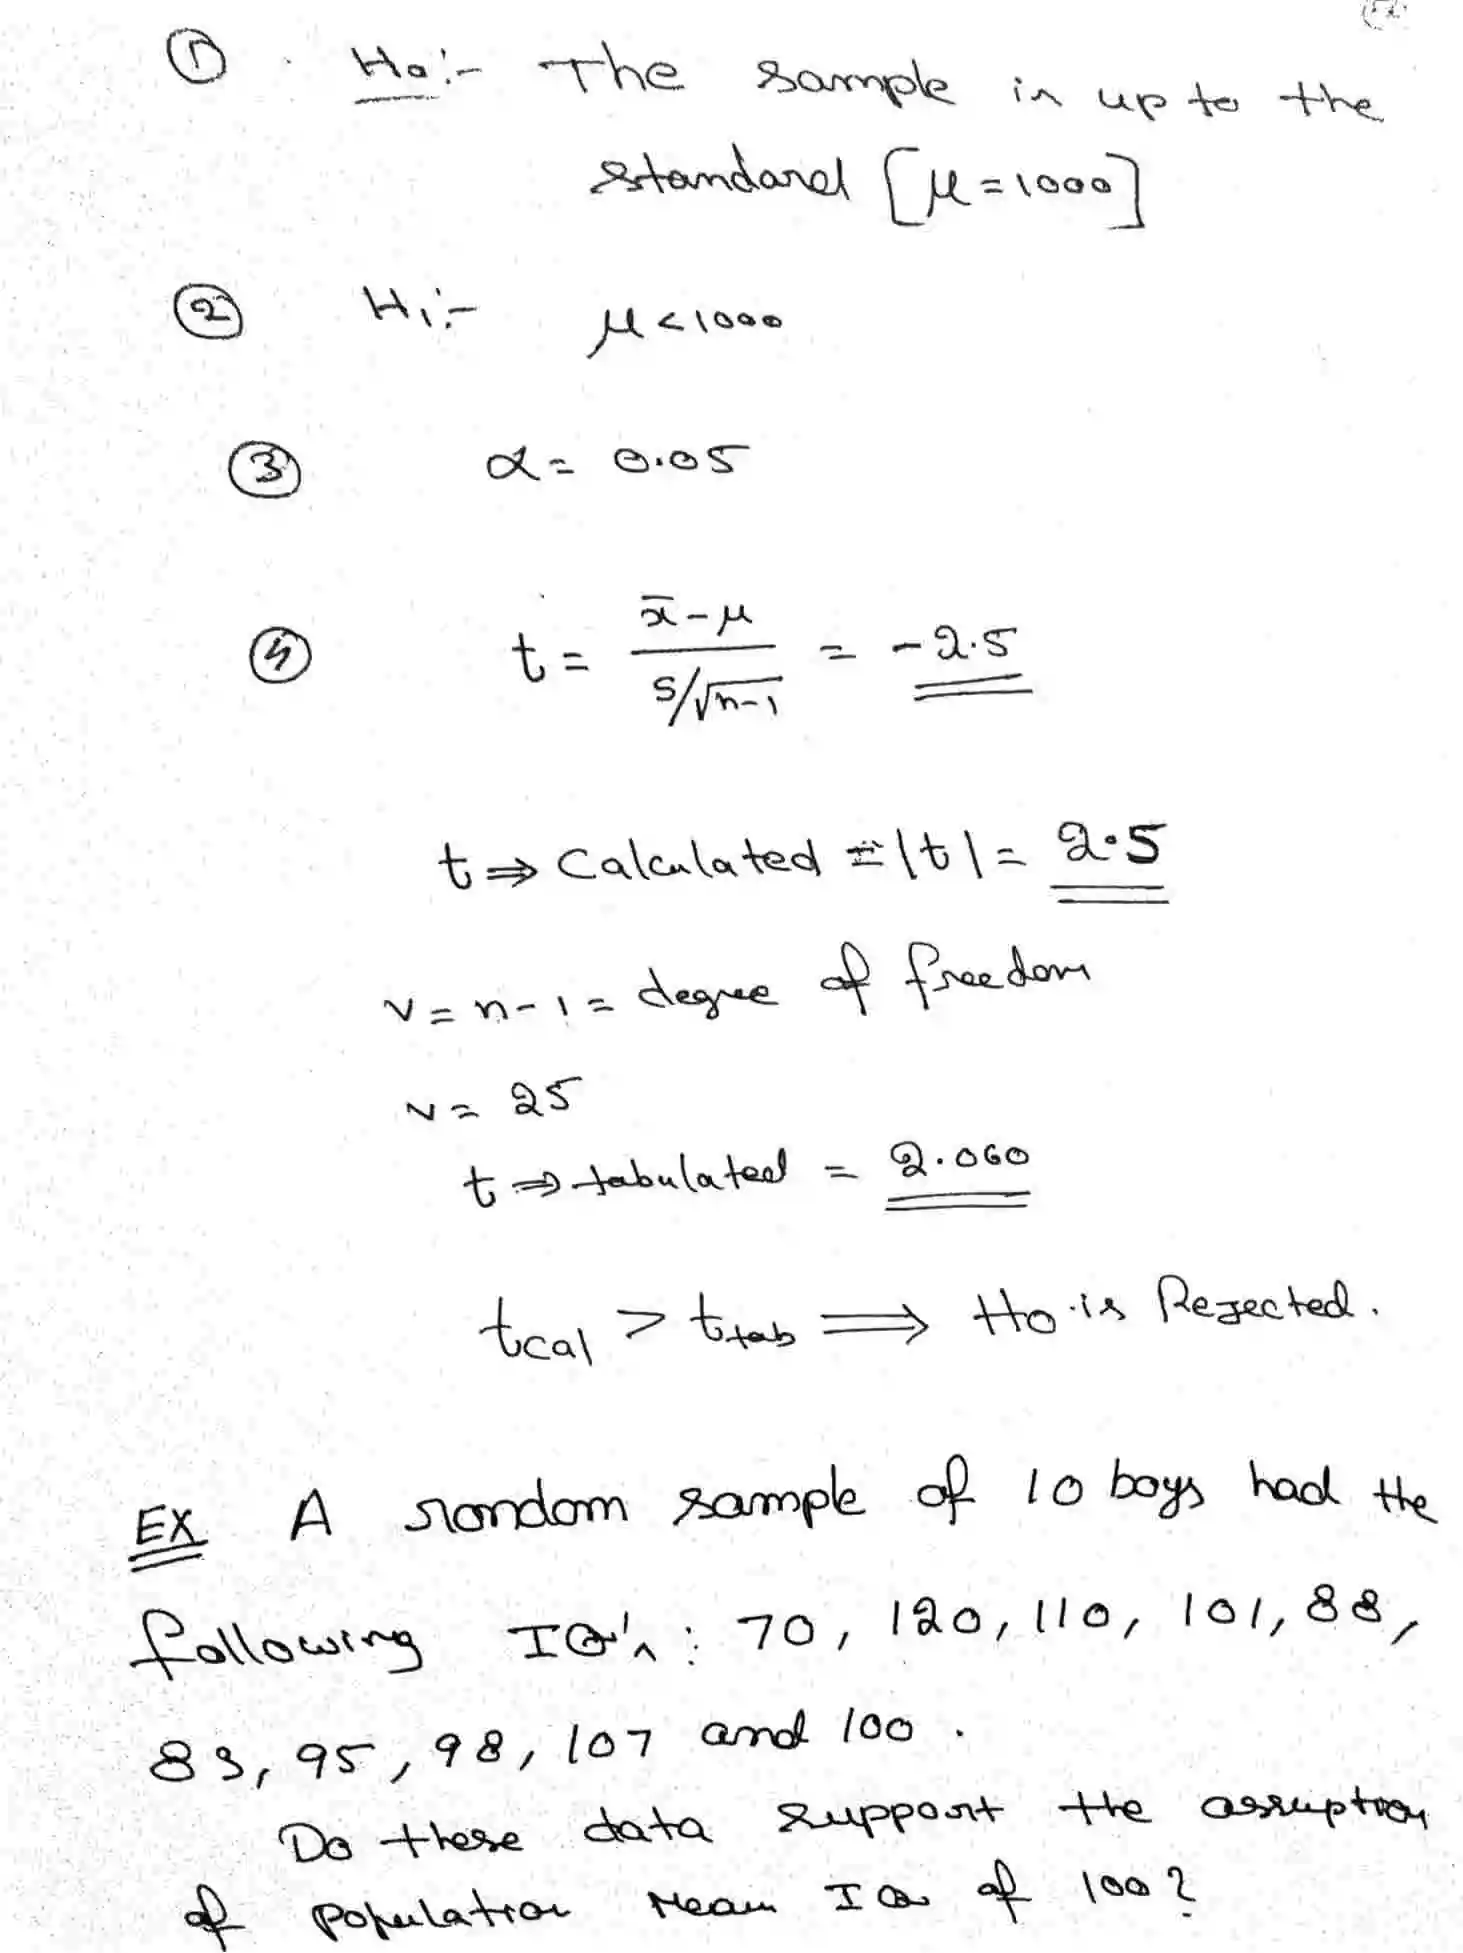 ① H₀:- The sample is up to the
standard [μ=1000]
② H₁:- μ<1000
③ α= 0.05
④ t = (x̄-μ)/(s/√n-1) = -2.5
t ⇒ Calculated = |t| = 2.5
v = n-1 = degree of freedom
v = 25
t ⇒ tabulated = 2.060
tcal > ttab ⟹ H₀ is Rejected.
EX A random sample of 10 boys had the
following IQ's: 70, 120, 110, 101, 88,
83, 95, 98, 107 and 100.
Do these data support the assuption
of population mean IQ of 100?